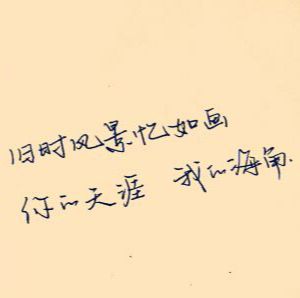 旧时风景忆如画
你的天涯 我的海角.